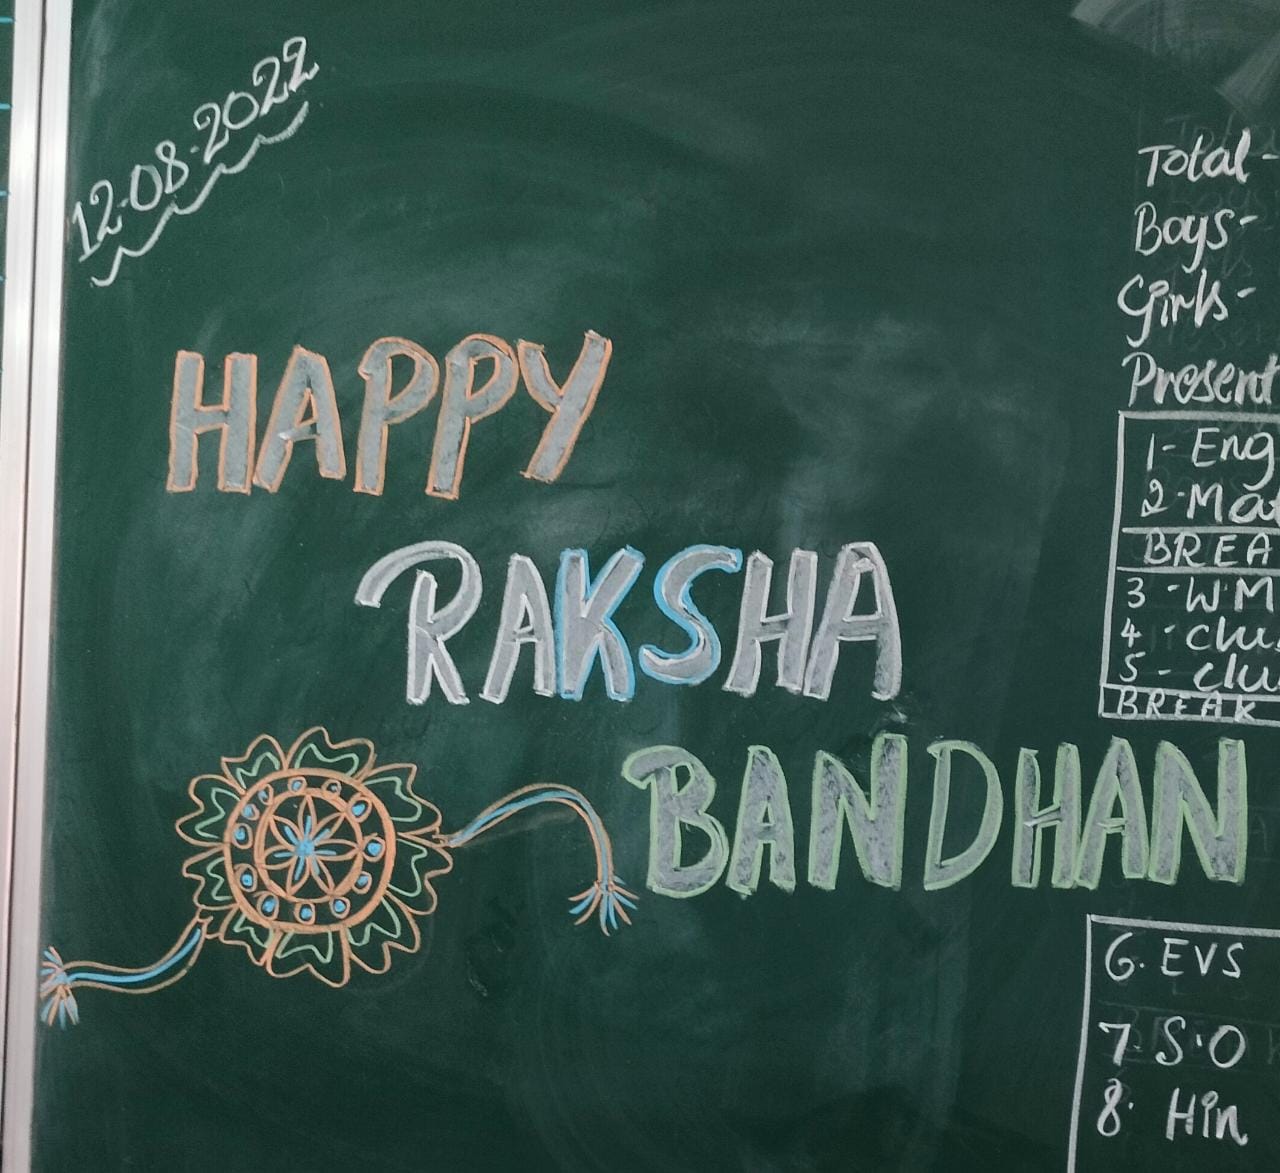 12.08.2022
HAPPY
RAKSHA
BANDHAN
Total -
Boys -
Girls -
Present
1- Eng
2. Mat
BREA
3 - WM
4 - clu
5 - clu
BREAK
6. EVS
7. S.O
8. Hin